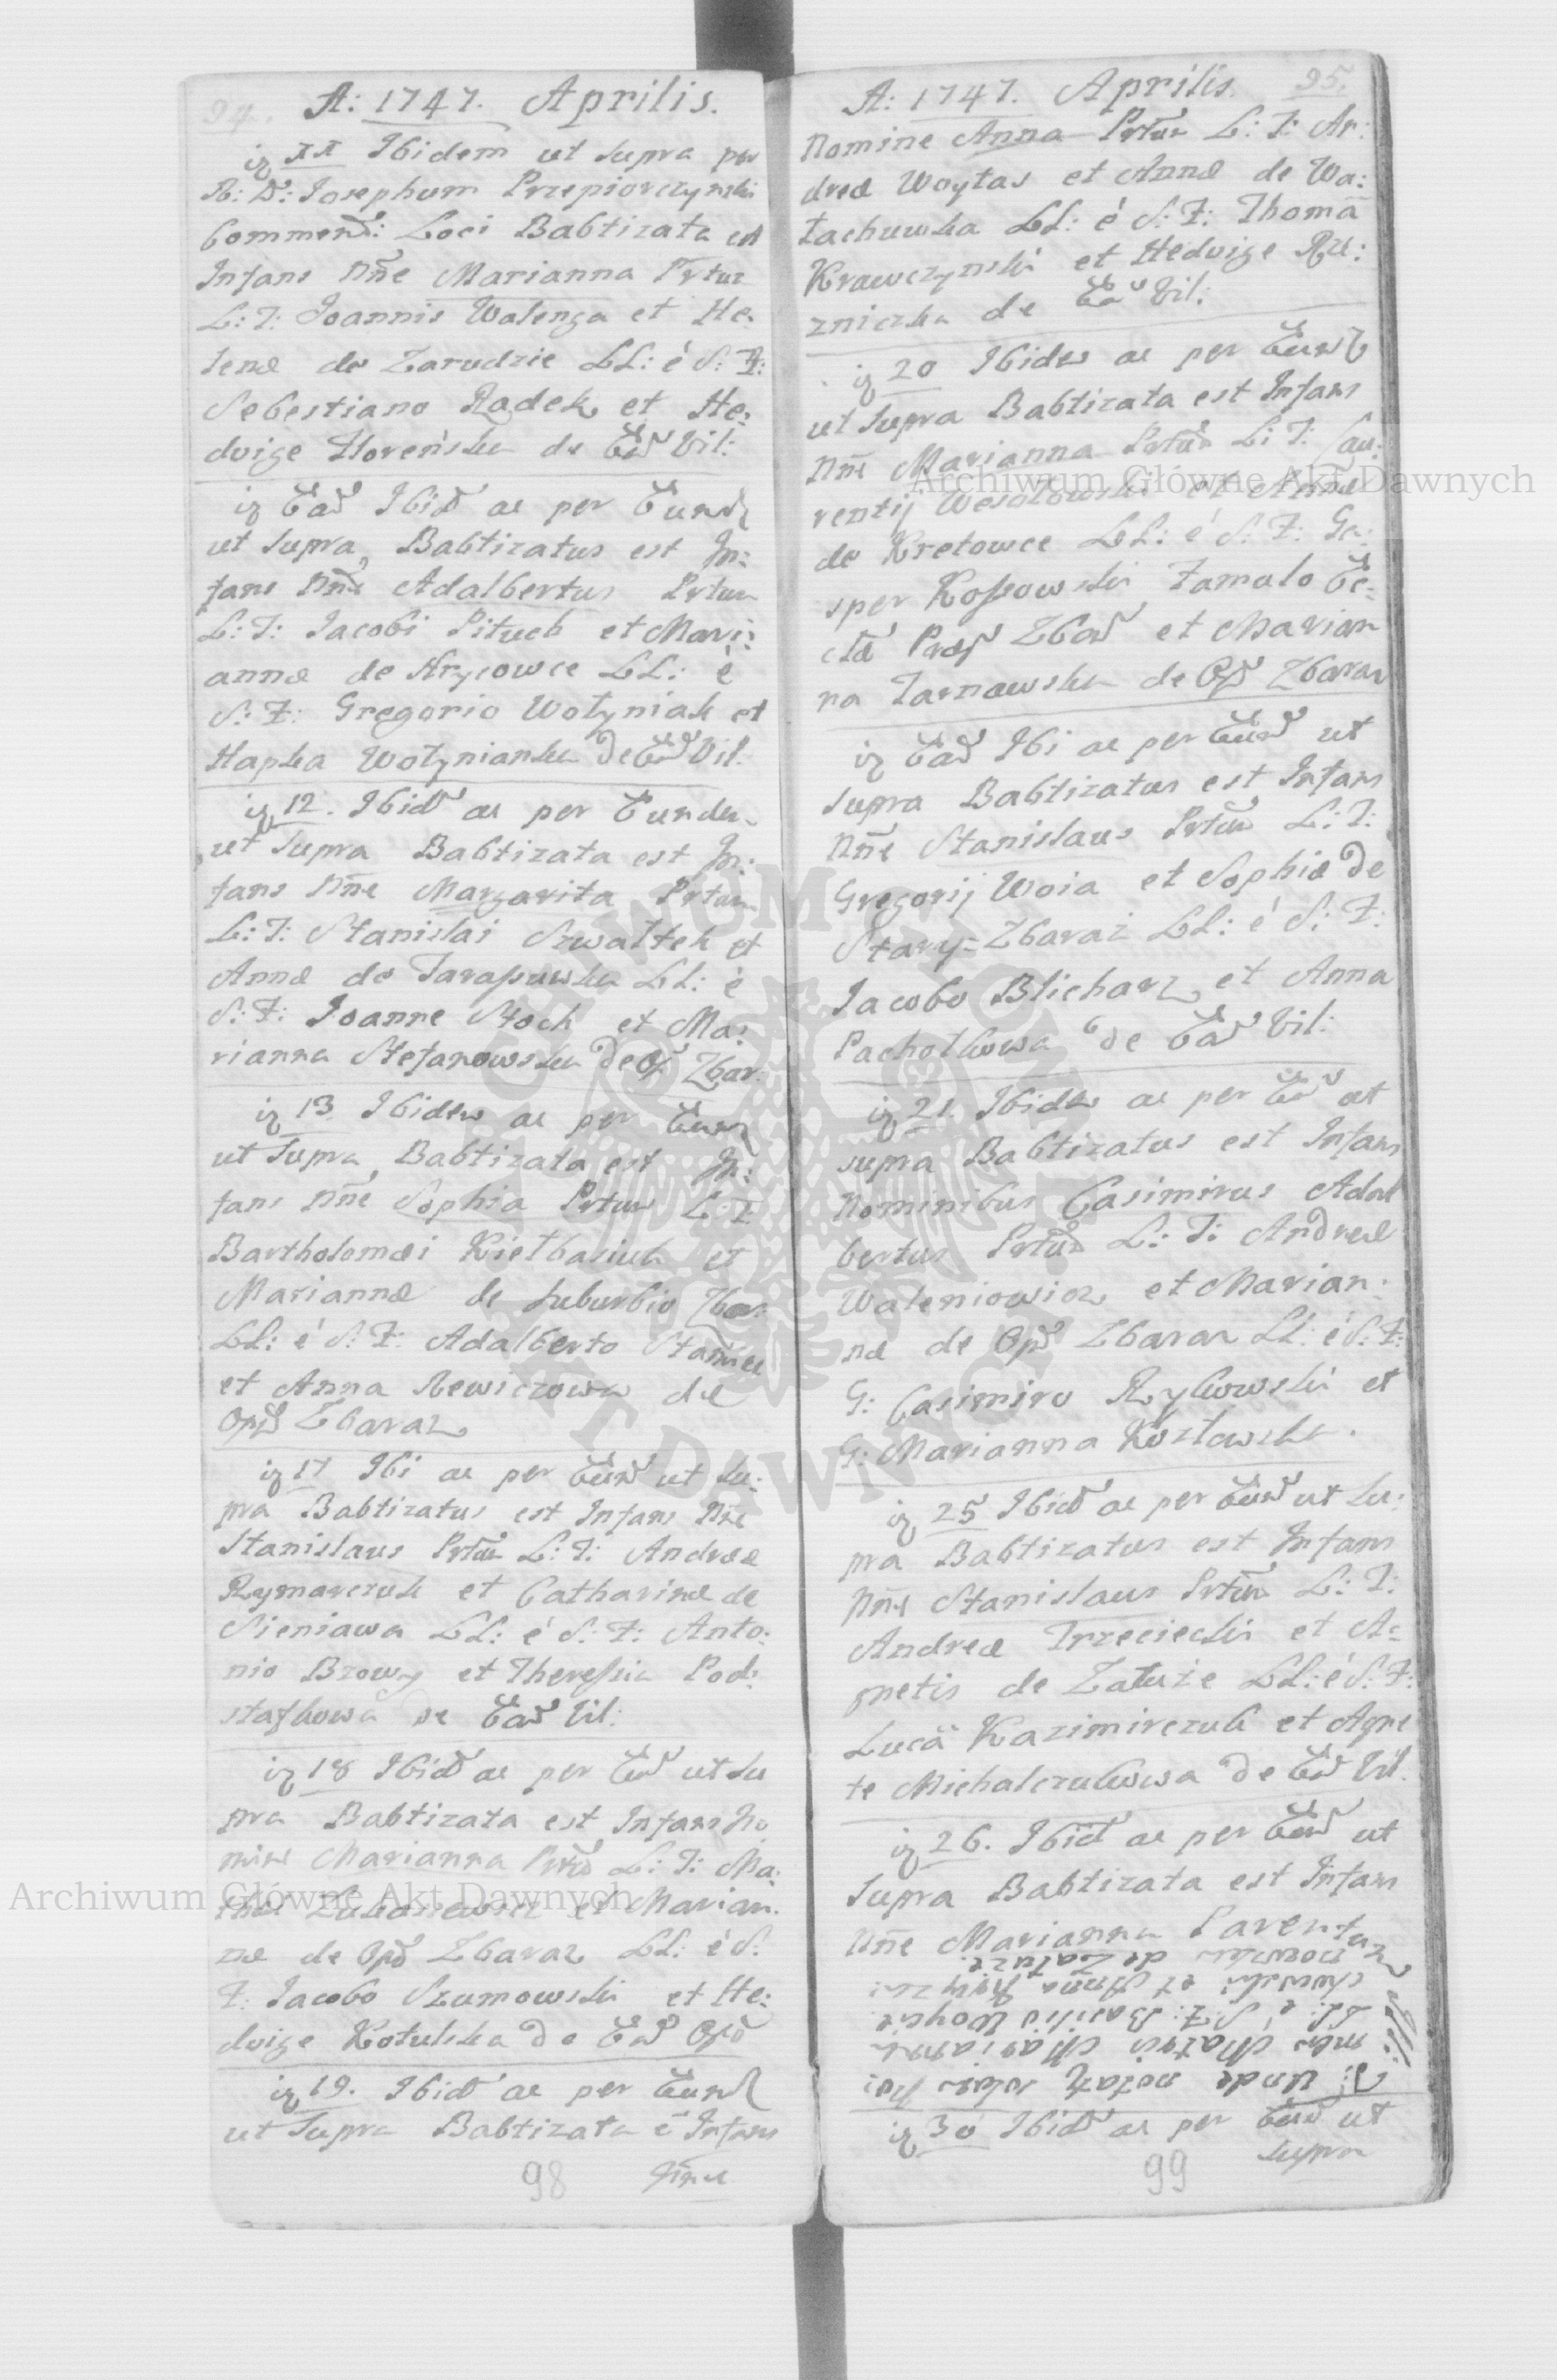 94. A: 1747. Aprilis.
ig XX Ibidem ut supra per
R: D: Josephum Przepiorczynski
Commend: Loci Babtizata est
Infans Nne Marianna Prtur
L: T: Joannis Walenga et He:
lenæ de Zarudzie LL: é S: F:
Sebestiano Radek et He:
dvige Horeńska de Ead Vil:
ig Ead Ibid ac per Eund
ut supra, Babtizatus est In:
fans Nne Adalbertus Prtur
L: T: Jacobi Pituch et Mari:
annæ de Hrycowce LL: é
S: F: Gregorio Wołyniak et
Hapka Wołynianka de Ead Vil.
ig 12. Ibid ac per Eundem
ut supra Babtizata est In:
fans Nne Margarita Prtur
L: T: Stanislai Szwałtek et
Annæ de Tarasuwka LL: é
S: F: Joanne Stoch et Ma:
rianna Stefanowska de Op. Zbar:
ig 13 Ibidem ac per Eund
ut supra, Babtizata est In:
fans Nne Sophia Prtur L: T:
Bartholomæi Kiełbasiuk et
Mariannæ de suburbio Zbar:
LL: é S: F: Adalberto
et Anna Rewiczowa de
Opid Zbaraz
ig 17 Ibi ac per Eund ut su:
pra Babtizatus est Infans Nne
Stanislaus Prtur L: T: Andreæ
Rymarczuk et Catharinæ de
Sieniawa LL: é S: F: Anto:
nio Brzowy et Theressia Pod:
stafkowa de Ead Vil:
ig 18 Ibid ac per Eund ut su
pra Babtizata est Infans No
mine Marianna Prtur L: T: Ma:
thæi Lukasiewicz et Marian:
næ de Opid Zbaraz LL: é S:
F: Jacobo Szumowski et He:
dvige Kotulska de Ead Opid
ig 19. Ibid ac per Eund
ut supra Babtizata é Infans
98
A: 1747. Aprilis. 95.
Nomine Anna Prtur L: T: An:
dreæ Woytas et Annæ de Wa:
łachuwka LL: é S: F: Thoma
Krawczynski et Hedvige Rze:
zniczka de Ead Vil:
ig 20 Ibidem ac per Eund
ut supra Babtizata est Infans
Nne Marianna Prtur L: T: Lau:
rentij Wesołowski et Annæ
de Kretowce LL: é S: F: Ga:
sper Kossowski Famulo Ec:
clæ Zbar et Marian
na Tarnawska de Opid Zbaraz
ig Ead Ibi ac per Eund ut
supra Babtizatus est Infans
Nne Stanislaus Prtur L: T:
Gregorij Woia et Sophiæ de
Stary-Zbaraż LL: é S: F:
Jacobo Blicharz et Anna
Pachołkowa de Ead Vil:
ig 21. Ibidem ac per Eund ut
supra Babtizatus est Infans
Nominibus Casimirus Adal
bertus Prtur L: T: Andreæ
Waleniowicz et Marian:
næ de Opid Zbaraz LL: é S: F:
G: Casimiro Rylowski et
G: Marianna Kozłowska.
ig 25 Ibid ac per Eund ut su:
pra Babtizatus est Infans
Nne Stanislaus Prtur L: T:
Andreæ Trzeciecki et A:
gnetis de Załuże LL: é S: F:
Luca Kazimirczuk et Agne
te Michalczukowa de Ead Vil.
ig 26. Ibid ac per Eund ut
supra Babtizata est Infans
Nne Marianna Parentum
de Załuze
et Anna
LL: é S: F: Basilio
Matris Mariannæ
unde
ig 30 Ibid ac per Eund ut
supra
99
Archiwum Główne Akt Dawnych
Archiwum Główne Akt Dawnych
ARCHIWUM GŁÓWNE AKT DAWNYCH